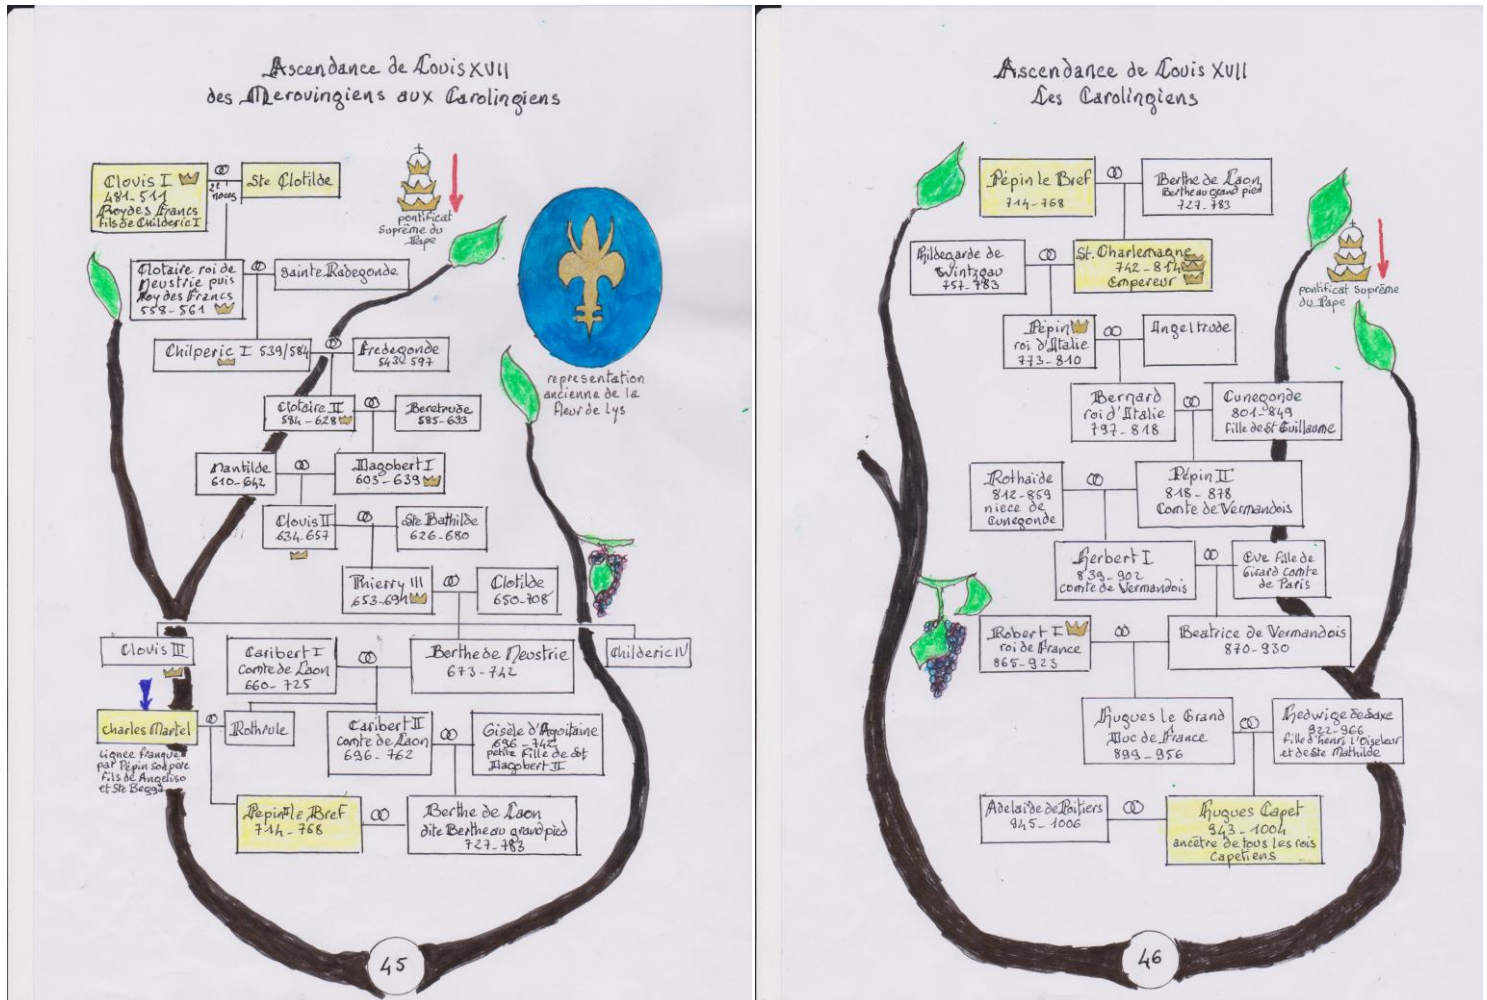 Ascendance de Louis XVII
des Merovingiens aux Carolingiens
Clovis I
481-511
Roy des Francs
fils de Childeric I
2e
noces
Ste Clotilde
pontificat
Suprême du
Pape
Clotaire roi de
Neustrie puis
Roy des Francs
558-561
Sainte Radegonde
Chilperic I 539/584
Fredegonde
543-597
representation
ancienne de la
fleur de lys
Clotaire II
584-628
Beretrude
585-633
Nantilde
610-642
Dagobert I
605-639
Clovis II
634-657
Ste Bathilde
626-680
Thierry III
653-691
Clotilde
650-708
Clovis III
Caribert I
Comte de Laon
660-725
Berthe de Neustrie
673-742
Childeric IV
Charles Martel
Lignee franque
par Pépin son père
fils de Angeliso
et Ste Begga
Rothrule
Caribert II
Comte de Laon
696-762
Gisèle d'Aquitaine
696-742
petite fille de St
Dagobert II
Pepin le Bref
714-768
Berthe de Laon
dite Berthe au grand pied
727-783
45
Ascendance de Louis XVII
Les Carolingiens
Pépin le Bref
714-768
Berthe de Laon
Berthe au grand pied
727-783
Hildegarde de
Wintzgau
757-783
St. Charlemagne
742-814
Empereur
pontificat Suprême
du Pape
Pépin
roi d'Italie
773-810
Angeltrude
Bernard
roi d'Italie
797-818
Cunegonde
801-849
fille de St Guillaume
Rothaïde
812-859
niece de
Cunegonde
Pépin II
818-878
Comte de Vermandois
Herbert I
839-902
comte de Vermandois
Eve fille de
Girard comte
de Paris
Robert I
roi de France
865-923
Beatrice de Vermandois
870-930
Hugues le Grand
Duc de France
899-956
Hedwige de Saxe
922-966
fille d'henri L'Oiseleur
et de Ste Mathilde
Adelaïde de Poitiers
945-1006
Hugues Capet
943-1004
ancêtre de tous les rois
Capetiens
46